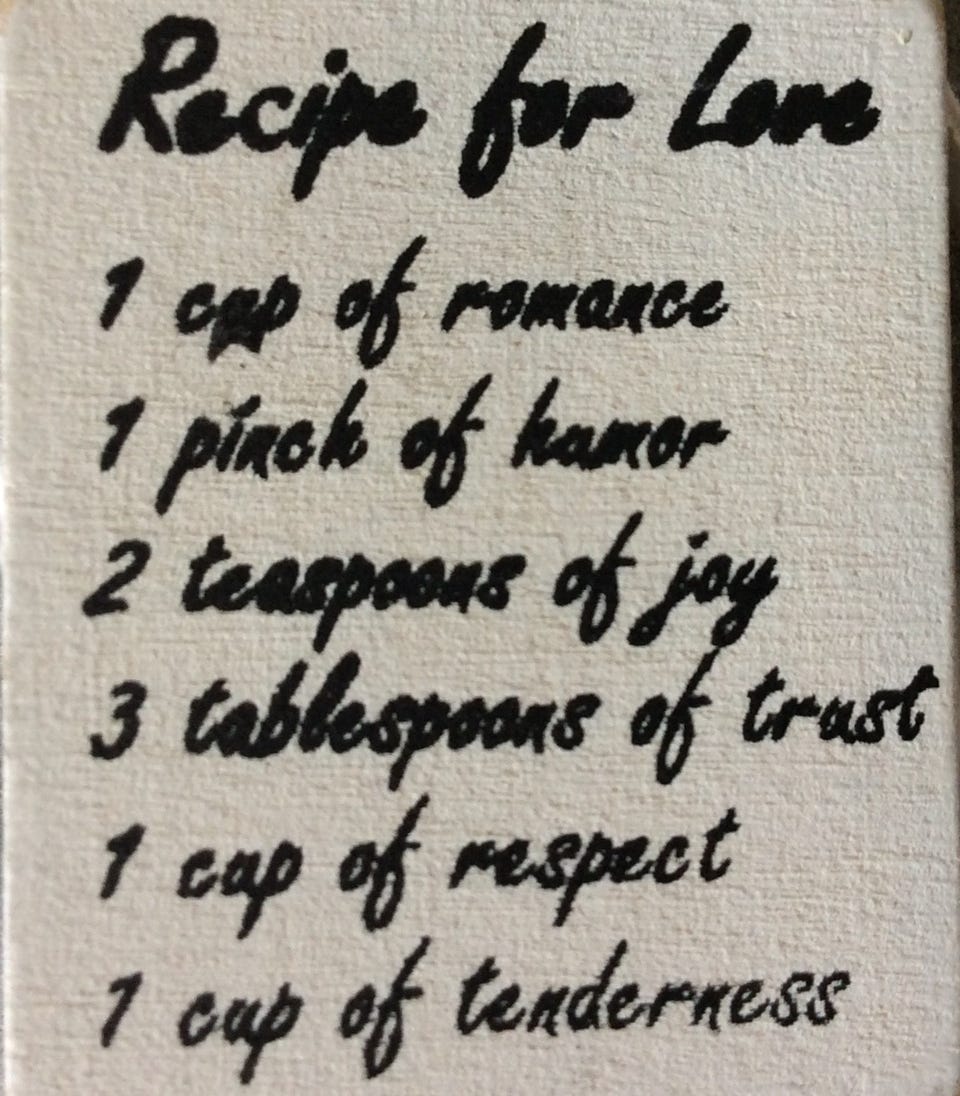 Recipe for Love
1 cup of romance
1 pinch of humor
2 teaspoons of joy
3 tablespoons of trust
1 cup of respect
1 cup of tenderness